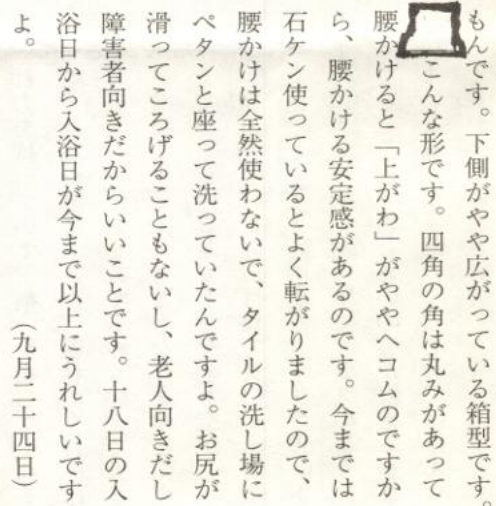 もんです。下側がやや広がっている箱型です。
こんな形です。四角の角は丸みがあって
腰かけると「上がわ」がややヘコムのですか
ら、腰かける安定感があるのです。今までは
石ケン使っているとよく転がりましたので、
腰かけは全然使わないで、タイルの洗し場に
ペタンと座って洗っていたんですよ。お尻が
滑ってころげることもないし、老人向きだし
障害者向きだからいいことです。十八日の入
浴日から入浴日が今まで以上にうれしいです
よ。
（九月二十四日）